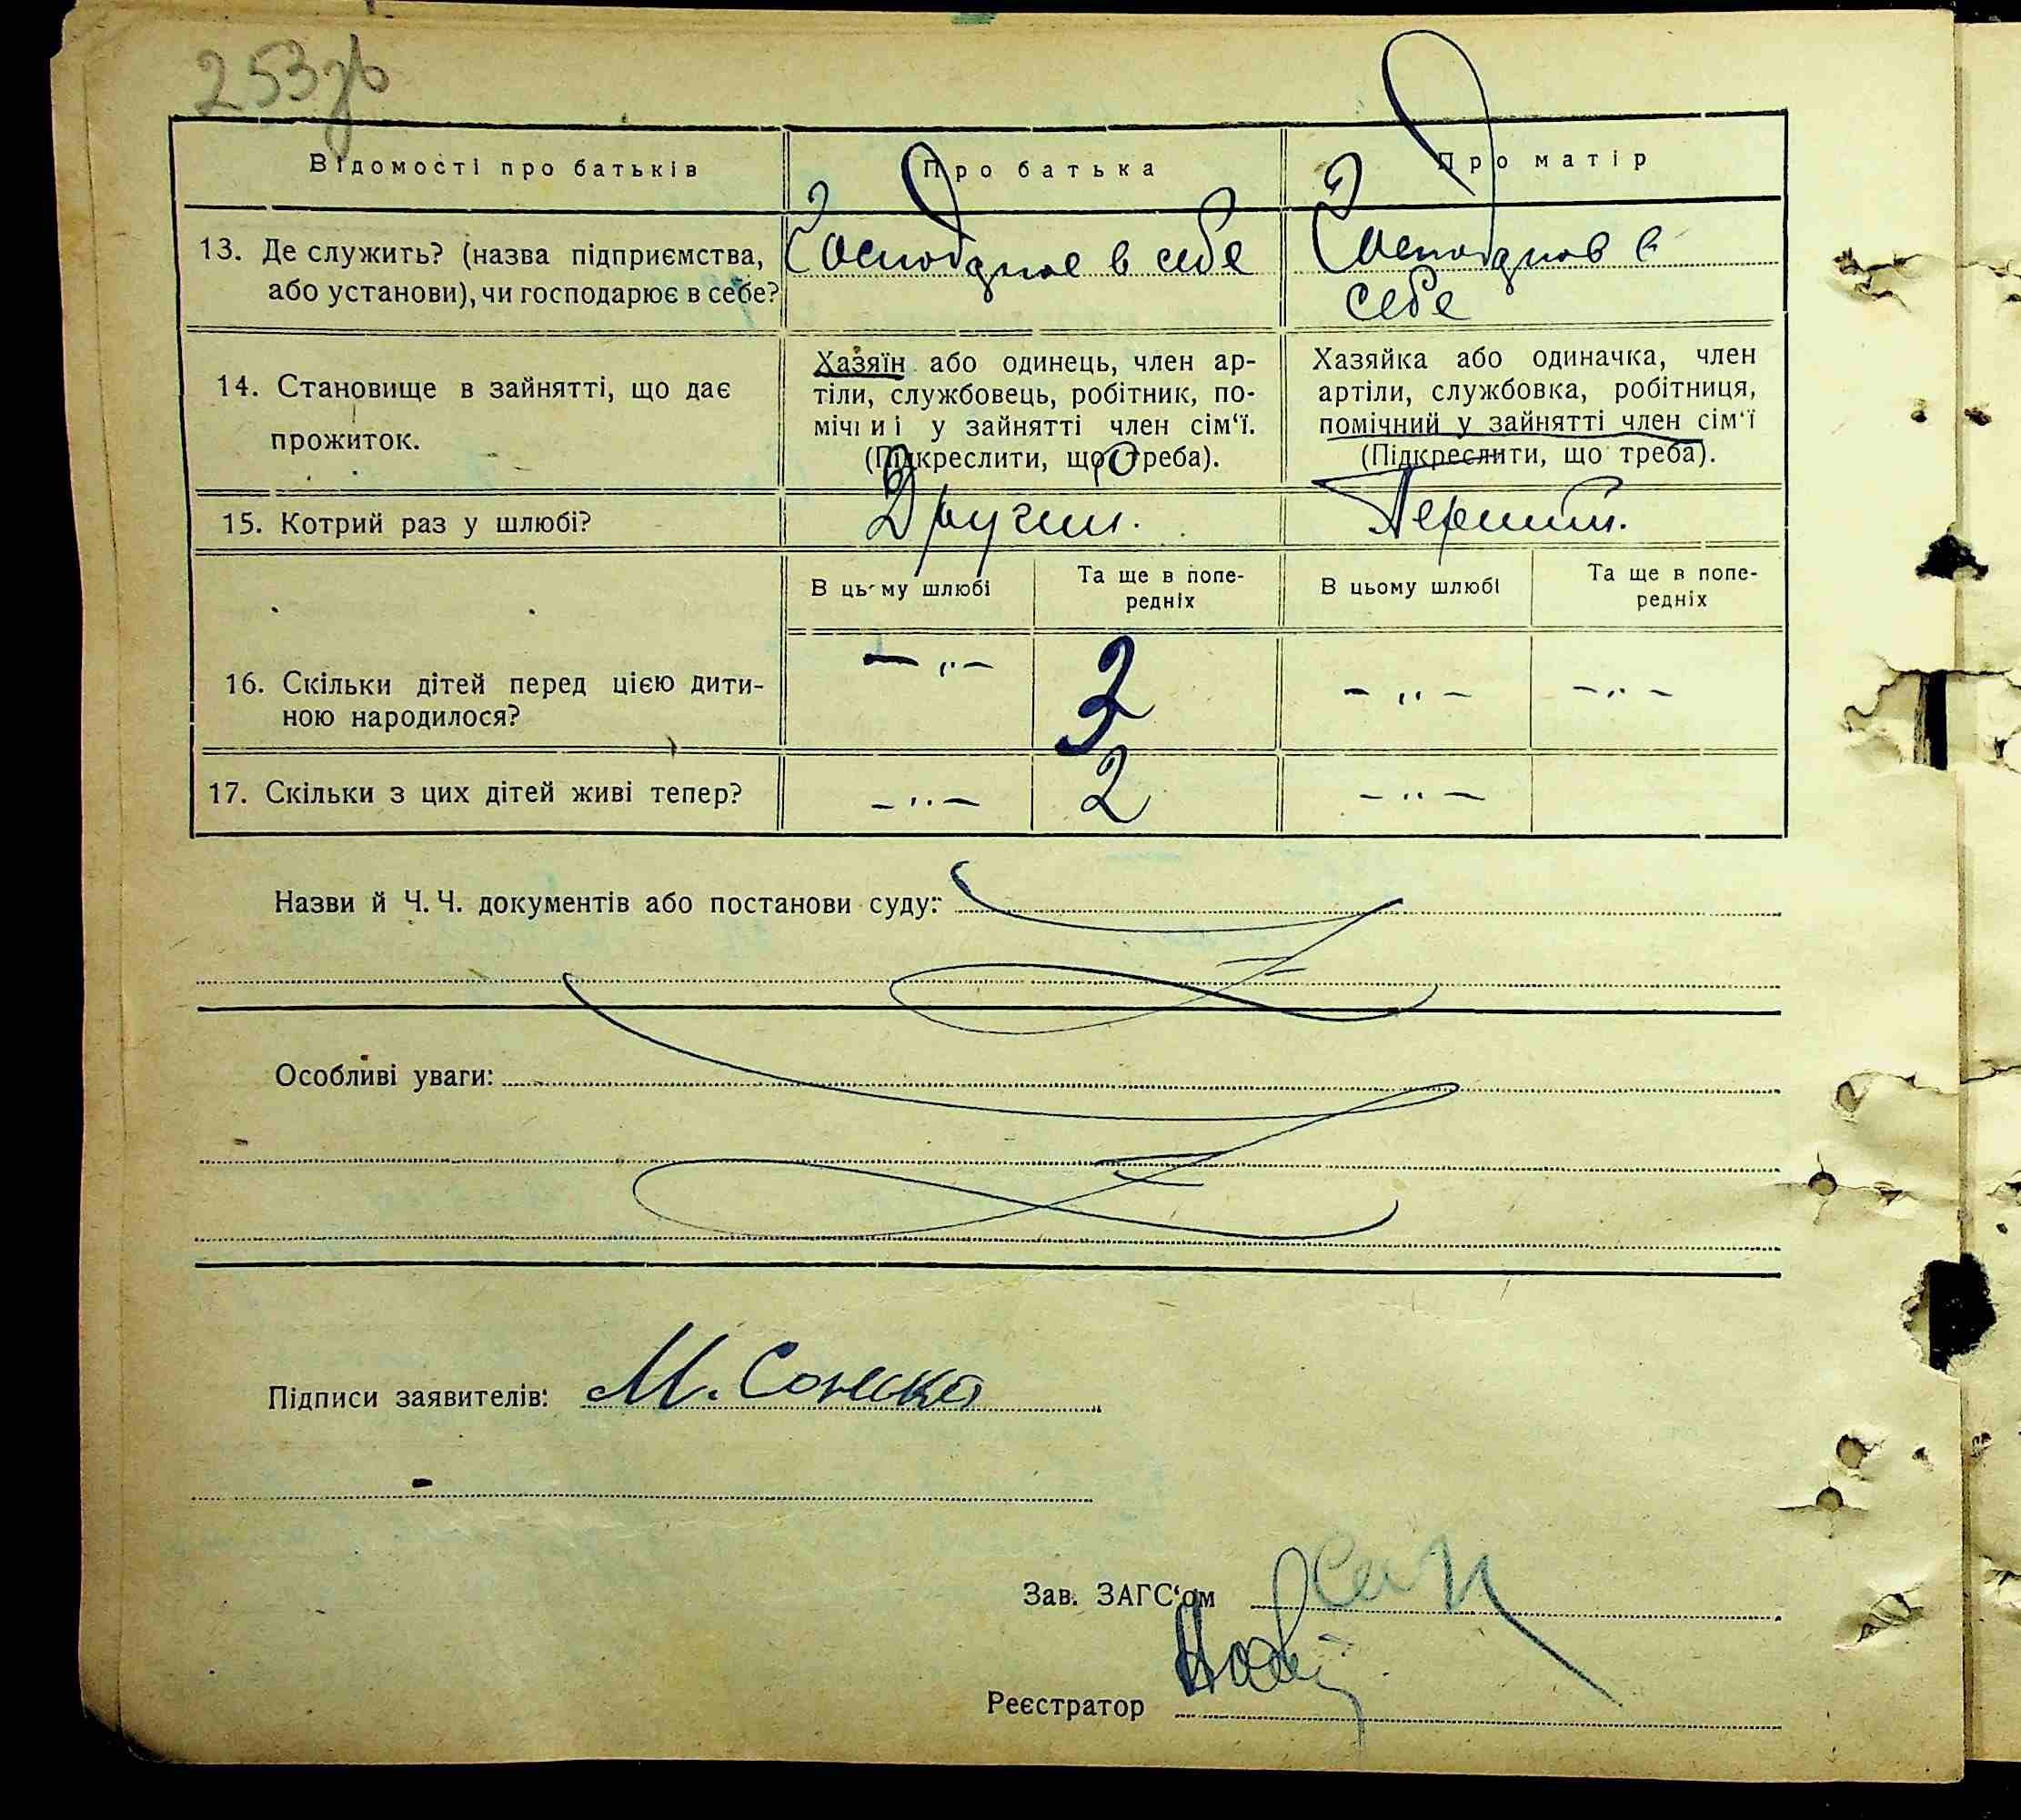 253зв
Відомості про батьків
Про батька
Про матір
13. Де служить? (назва підприємства,
або установи), чи господарює в себе?
в себе
в
себе
14. Становище в зайнятті, що дає
прожиток.
Хазяїн або одинець, член ар-
тіли, службовець, робітник, по-
мічний у зайнятті член сім‘ї.
(Підкреслити, що треба).
Хазяйка або одиначка, член
артіли, службовка, робітниця,
помічний у зайнятті член сім‘ї
(Підкреслити, що треба).
15. Котрий раз у шлюбі?
Другий.
Перший.
В цьому шлюбі
Та ще в попе-
редніх
В цьому шлюбі
Та ще в попе-
редніх
16. Скільки дітей перед цією дити-
ною народилося?
— „ —
3
— „ —
— „ —
17. Скільки з цих дітей живі тепер?
— „ —
2
— „ —
Назви й Ч. Ч. документів або постанови суду:
Особливі уваги:
Підписи заявителів: М.
Зав. ЗАГС‘ом
Реєстратор